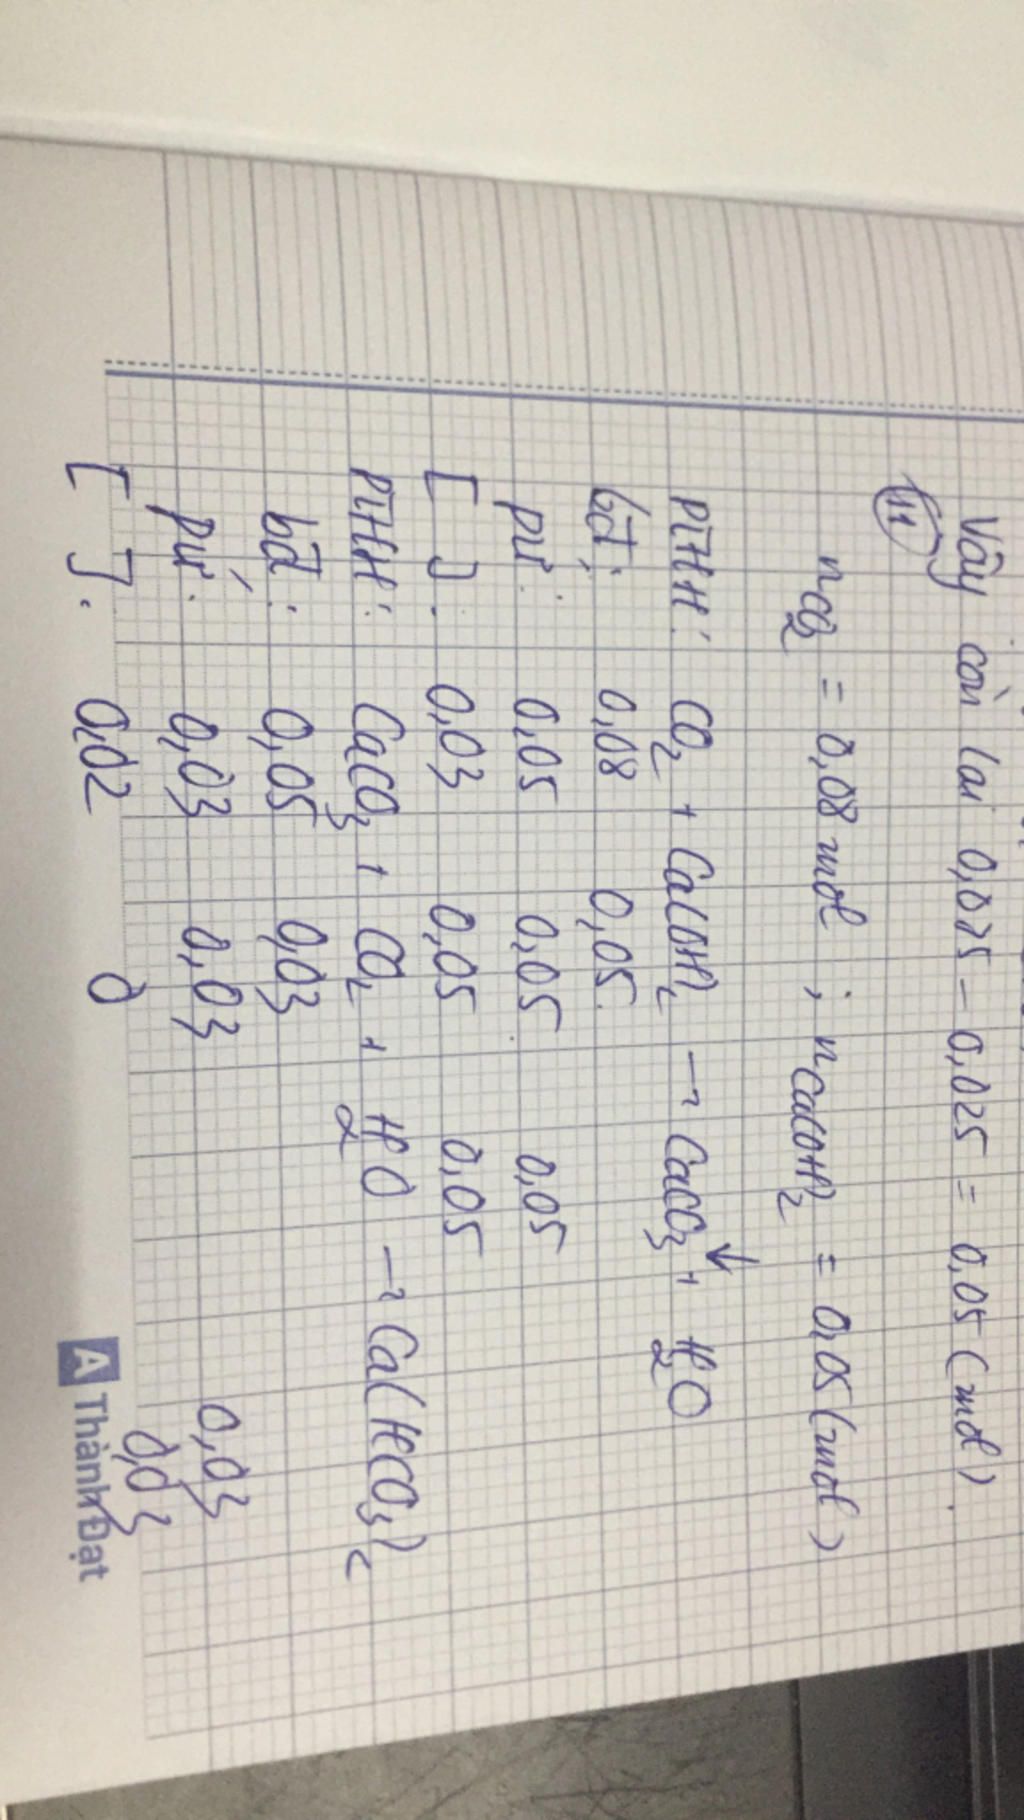 Vậy còn lại 0,075 - 0,025 = 0,05 (mol).
11
nCO2 = 0,08 mol ; nCa(OH)2 = 0,05 (mol)
PTHH: CO2 + Ca(OH)2 → CaCO3↓ + H2O
bđ: 0,08 0,05.
pư: 0,05 0,05 0,05
[ ]: 0,03 0,05 0,05
PTHH: CaCO3 + CO2 + H2O → Ca(HCO3)2
bđ: 0,05 0,03
pư: 0,03 0,03 0,03
[ ]. 0,02 0 0,03
A Thành Đạt